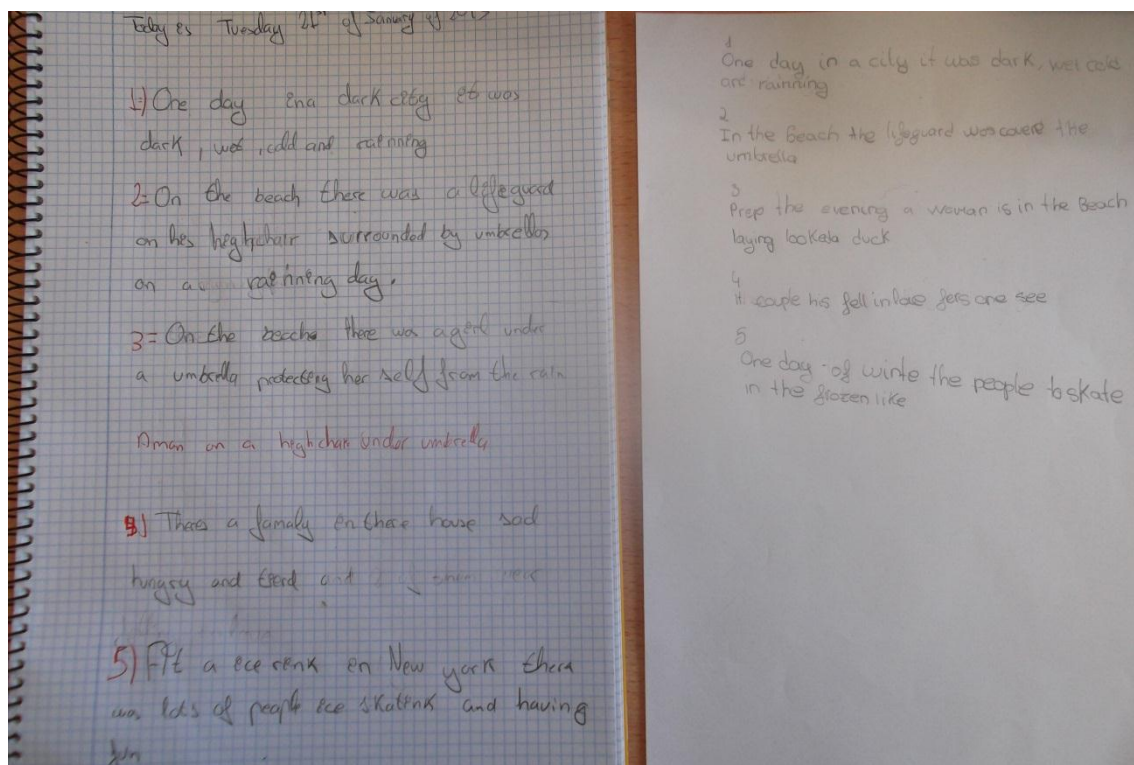 Today es Tuesday 21st of January of
1-) One day ina dark city et was
dark, wet, cold and raenning
2- On the beach there was a leffeguard
on hes heghchair surrounded by umbrellas
on a raenning day.
3= On the beache there was a gerl under
a umbrella protecteng her self from the rain
A man on a heghchair under umbrella
Theres a famaly en there house sad
hungry and tierd and
5) At a ece renk en New york there
was lots of peaple ece skatenk and having
fun
1
One day in a city it was dark, wet cold
are rainning
2
In the Beach the lifeguard was covere the
umbrella
3
Prep the evening a woman is in the Beach
laying lookela duck
4
couple his fell inlove fers one see
5
One day of winte the people to skate
in the frozen like